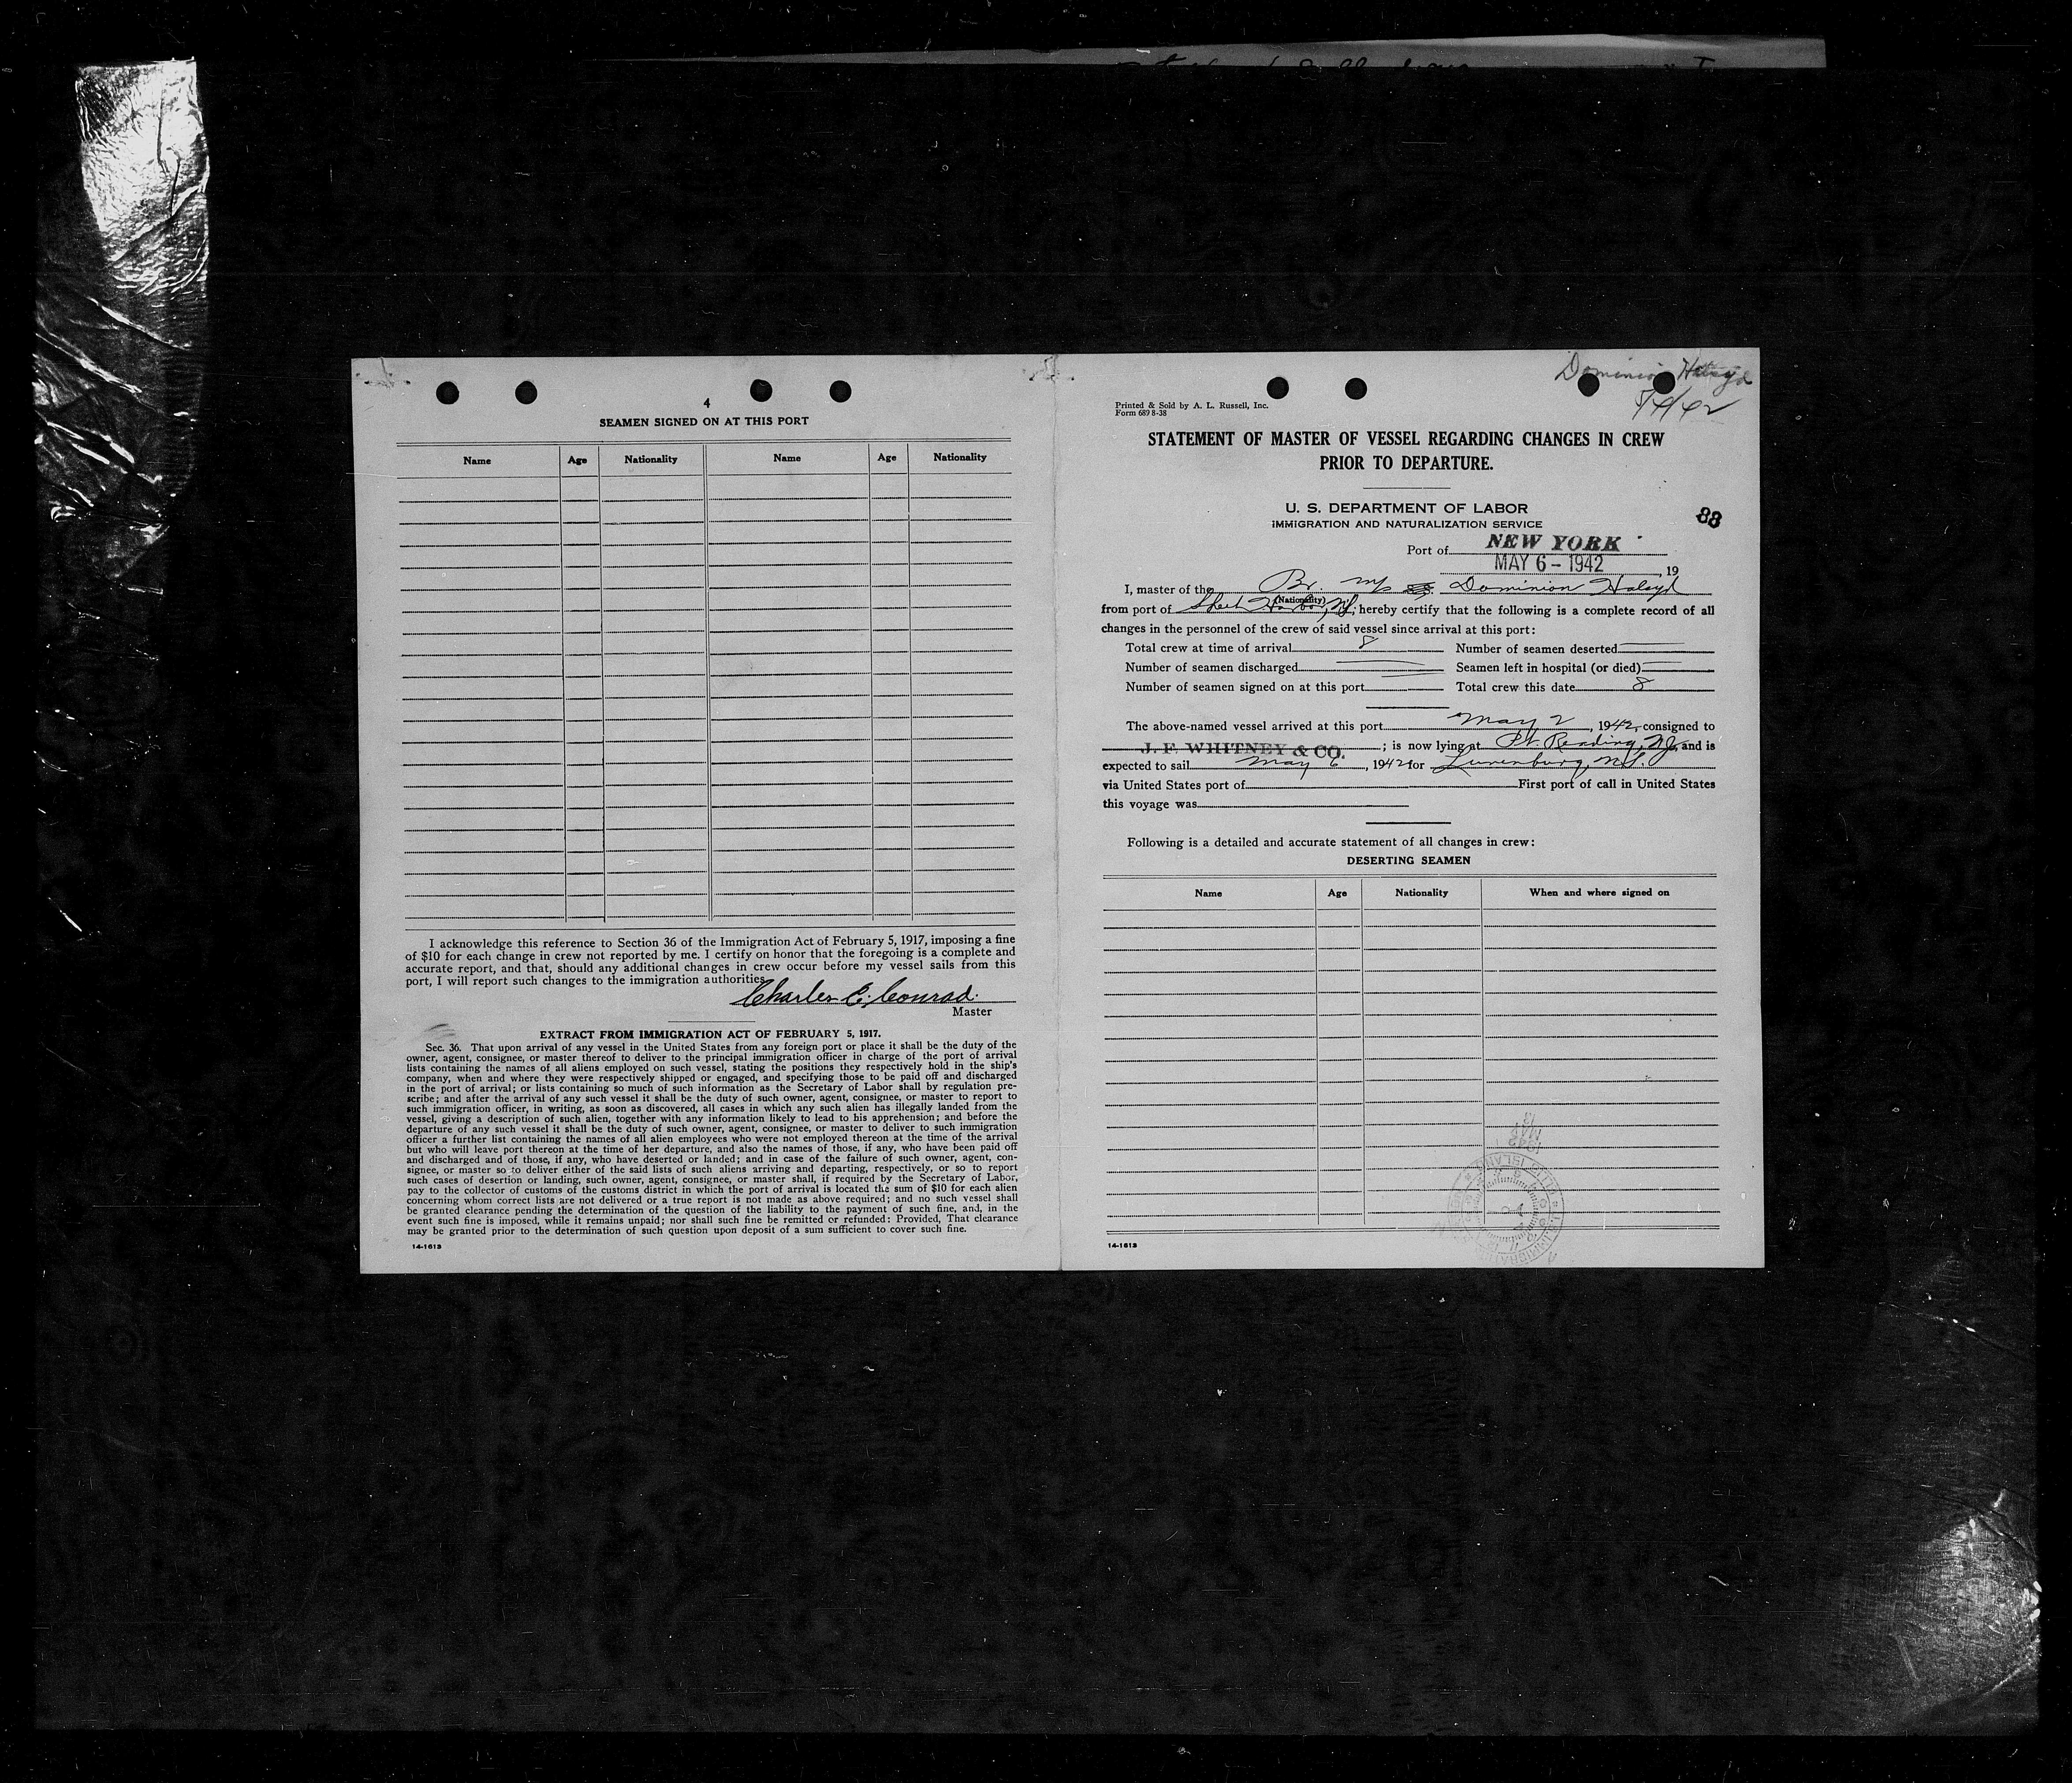 4
SEAMEN SIGNED ON AT THIS PORT
Name Age Nationality Name Age Nationality
I acknowledge this reference to Section 36 of the Immigration Act of February 5, 1917, imposing a fine
of $10 for each change in crew not reported by me. I certify on honor that the foregoing is a complete and
accurate report, and that, should any additional changes in crew occur before my vessel sails from this
port, I will report such changes to the immigration authorities.
Charles C. Conrad.
Master
EXTRACT FROM IMMIGRATION ACT OF FEBRUARY 5, 1917.
Sec. 36. That upon arrival of any vessel in the United States from any foreign port or place it shall be the duty of the
owner, agent, consignee, or master thereof to deliver to the principal immigration officer in charge of the port of arrival
lists containing the names of all aliens employed on such vessel, stating the positions they respectively hold in the ship's
company, when and where they were respectively shipped or engaged, and specifying those to be paid off and discharged
in the port of arrival; or lists containing so much of such information as the Secretary of Labor shall by regulation pre-
scribe; and after the arrival of any such vessel it shall be the duty of such owner, agent, consignee, or master to report to
such immigration officer, in writing, as soon as discovered, all cases in which any such alien has illegally landed from the
vessel, giving a description of such alien, together with any information likely to lead to his apprehension; and before the
departure of any such vessel it shall be the duty of such owner, agent, consignee, or master to deliver to such immigration
officer a further list containing the names of all alien employees who were not employed thereon at the time of the arrival
but who will leave port thereon at the time of her departure, and also the names of those, if any, who have been paid off
and discharged and of those, if any, who have deserted or landed; and in case of the failure of such owner, agent, con-
signee, or master so to deliver either of the said lists of such aliens arriving and departing, respectively, or so to report
such cases of desertion or landing, such owner, agent, consignee, or master shall, if required by the Secretary of Labor,
pay to the collector of customs of the customs district in which the port of arrival is located the sum of $10 for each alien
concerning whom correct lists are not delivered or a true report is not made as above required; and no such vessel shall
be granted clearance pending the determination of the question of the liability to the payment of such fine, and, in the
event such fine is imposed, while it remains unpaid; nor shall such fine be remitted or refunded: Provided, That clearance
may be granted prior to the determination of such question upon deposit of a sum sufficient to cover such fine.
14-1613
Dominion Halsyd
Printed & Sold by A. L. Russell, Inc.
Form 689 8-38
STATEMENT OF MASTER OF VESSEL REGARDING CHANGES IN CREW
PRIOR TO DEPARTURE.
U. S. DEPARTMENT OF LABOR
IMMIGRATION AND NATURALIZATION SERVICE
88
Port of NEW YORK
MAY 6 - 1942 , 19
I, master of the Br. Dominion Halsyd
(Nationality)
from port of Harbor, hereby certify that the following is a complete record of all
changes in the personnel of the crew of said vessel since arrival at this port:
Total crew at time of arrival 8 Number of seamen deserted
Number of seamen discharged Seamen left in hospital (or died)
Number of seamen signed on at this port Total crew this date 8
The above-named vessel arrived at this port May 2, 1942, consigned to
J. F. WHITNEY & CO. ; is now lying at Pt. Reading, NJ, and is
expected to sail May 6, 1942 for Lunenburg, N.S.
via United States port of First port of call in United States
this voyage was
Following is a detailed and accurate statement of all changes in crew:
DESERTING SEAMEN
Name Age Nationality When and where signed on
14-1613